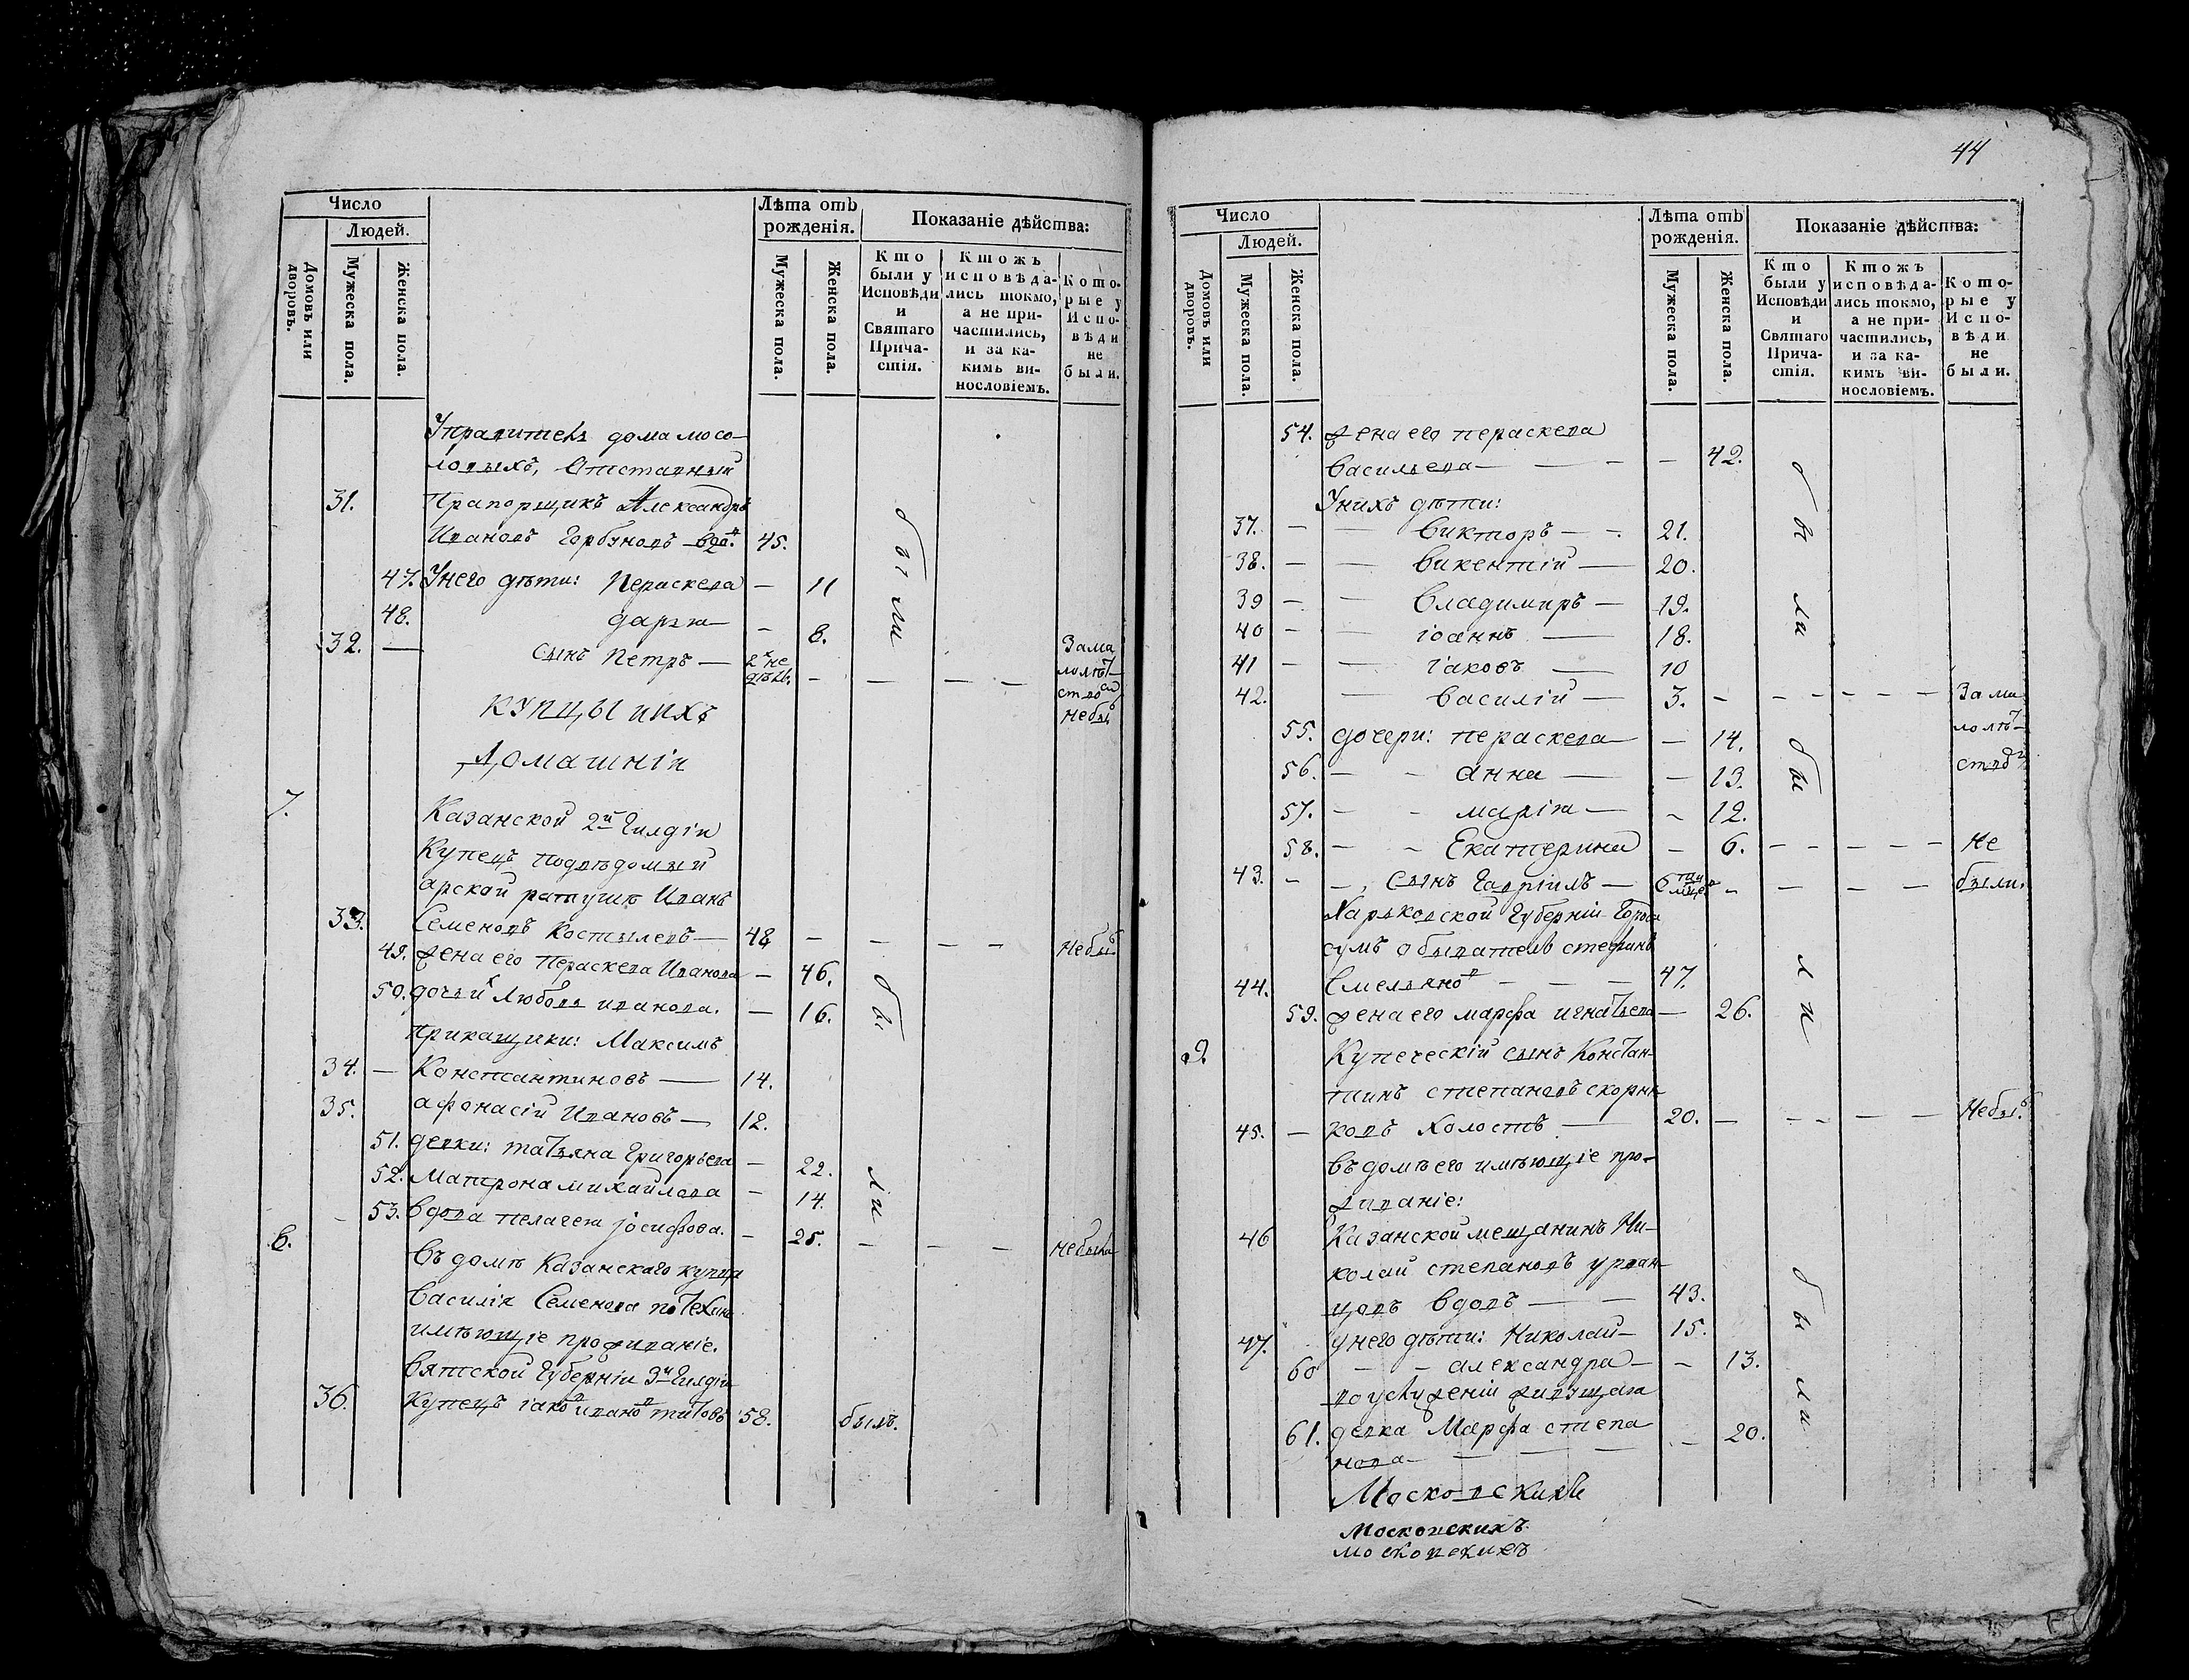 44
Число
Людей.
Домовъ или дворовъ.
Мужеска пола.
Женска пола.
Лѣта отъ рожденія.
Мужеска пола.
Женска пола.
Показаніе дѣйства:
Кто были у Исповѣди и Святаго Причастія.
Ктожъ исповѣдались токмо, а не причастились, и за какимъ винословіемъ.
Которые у Исповѣди не были.
Управитель дома мосо-
ловыхъ, Отставный
31. Прапорщикъ Александръ
Ивановъ Горбуновъ вдов. 45. были
47. Унего дѣти: Пераскева — 11
48. дарья — 8.
32. — сынъ Петръ — 2хъ не дѣль. — — — — Зама лолѣт ством небы
купцы иихъ
домашніи
7. Казанской 2й Гилдіи
Купецъ подвѣдомый
арской ратуши Иванъ
33. Семеновъ Костылевъ — 48 — — — — Небылъ
49. жена его Пераскева Иванова — 46. были
50. дочь ихъ Любовь иванова. — 16.
Прикащики: Максимъ
34. — Константиновъ — 14.
35. афонасій Ивановъ — 12.
51. девки: татьяна Григорьева — 22.
52. Матрона михайлова — 14.
53. вдова пелагея іосифова. — 25. — — — небыла
8. Въ домѣ Казанскаго купца
Василія Семенова потехина
имѣющіе проживаніе.
Вятской Губерніи 3й Гилдіи
36. Купецъ іаковъ ивановъ титовъ 58. былъ.
Число
Людей.
Домовъ или дворовъ.
Мужеска пола.
Женска пола.
Лѣта отъ рожденія.
Мужеска пола.
Женска пола.
Показаніе дѣйства:
Кто были у Исповѣди и Святаго Причастія.
Ктожъ исповѣдались токмо, а не причастились, и за какимъ винословіемъ.
Которые у Исповѣди не были.
54. жена его пераскева
Васильева — — — — 42. были
Унихъ дѣти:
37. — — Викторъ — 21.
38. — — Викентій — 20.
39 — — Владимиръ — 19.
40 — — іоаннъ — 18.
41 — — іаковъ — 10
42. — Василій — 3. — — — — — — За ма лолѣт ством
55. дочери: пераскева — — 14. были
56. — — анна — — 13.
57. — — марія — — 12.
58. — — Екатерина — 6. — — — — — Не
43. — — сынъ Гавріилъ — 6ти мцов — — — — были.
Харьковской Губерніи
обыватель стефанъ
44. Емельяновъ — — — 47.
59. жена его марфа игнатьева — 26.
9. Купеческій сынъ Констан-
тинъ степановъ скорня-
45. — ковъ холостъ — 20. — — — — — Небылъ
Въ домѣ его имѣющіе про-
живаніе:
46 Казанской мещанинъ Ни-
колай степановъ
вдовъ — — 43. были
47. унего дѣти: Николай — 15.
60 — — александра — — 13.
въ услуженіи живущая
61. девка Марфа степа
нова — — — — 20.
Московскихъ
Московскихъ
московскихъ